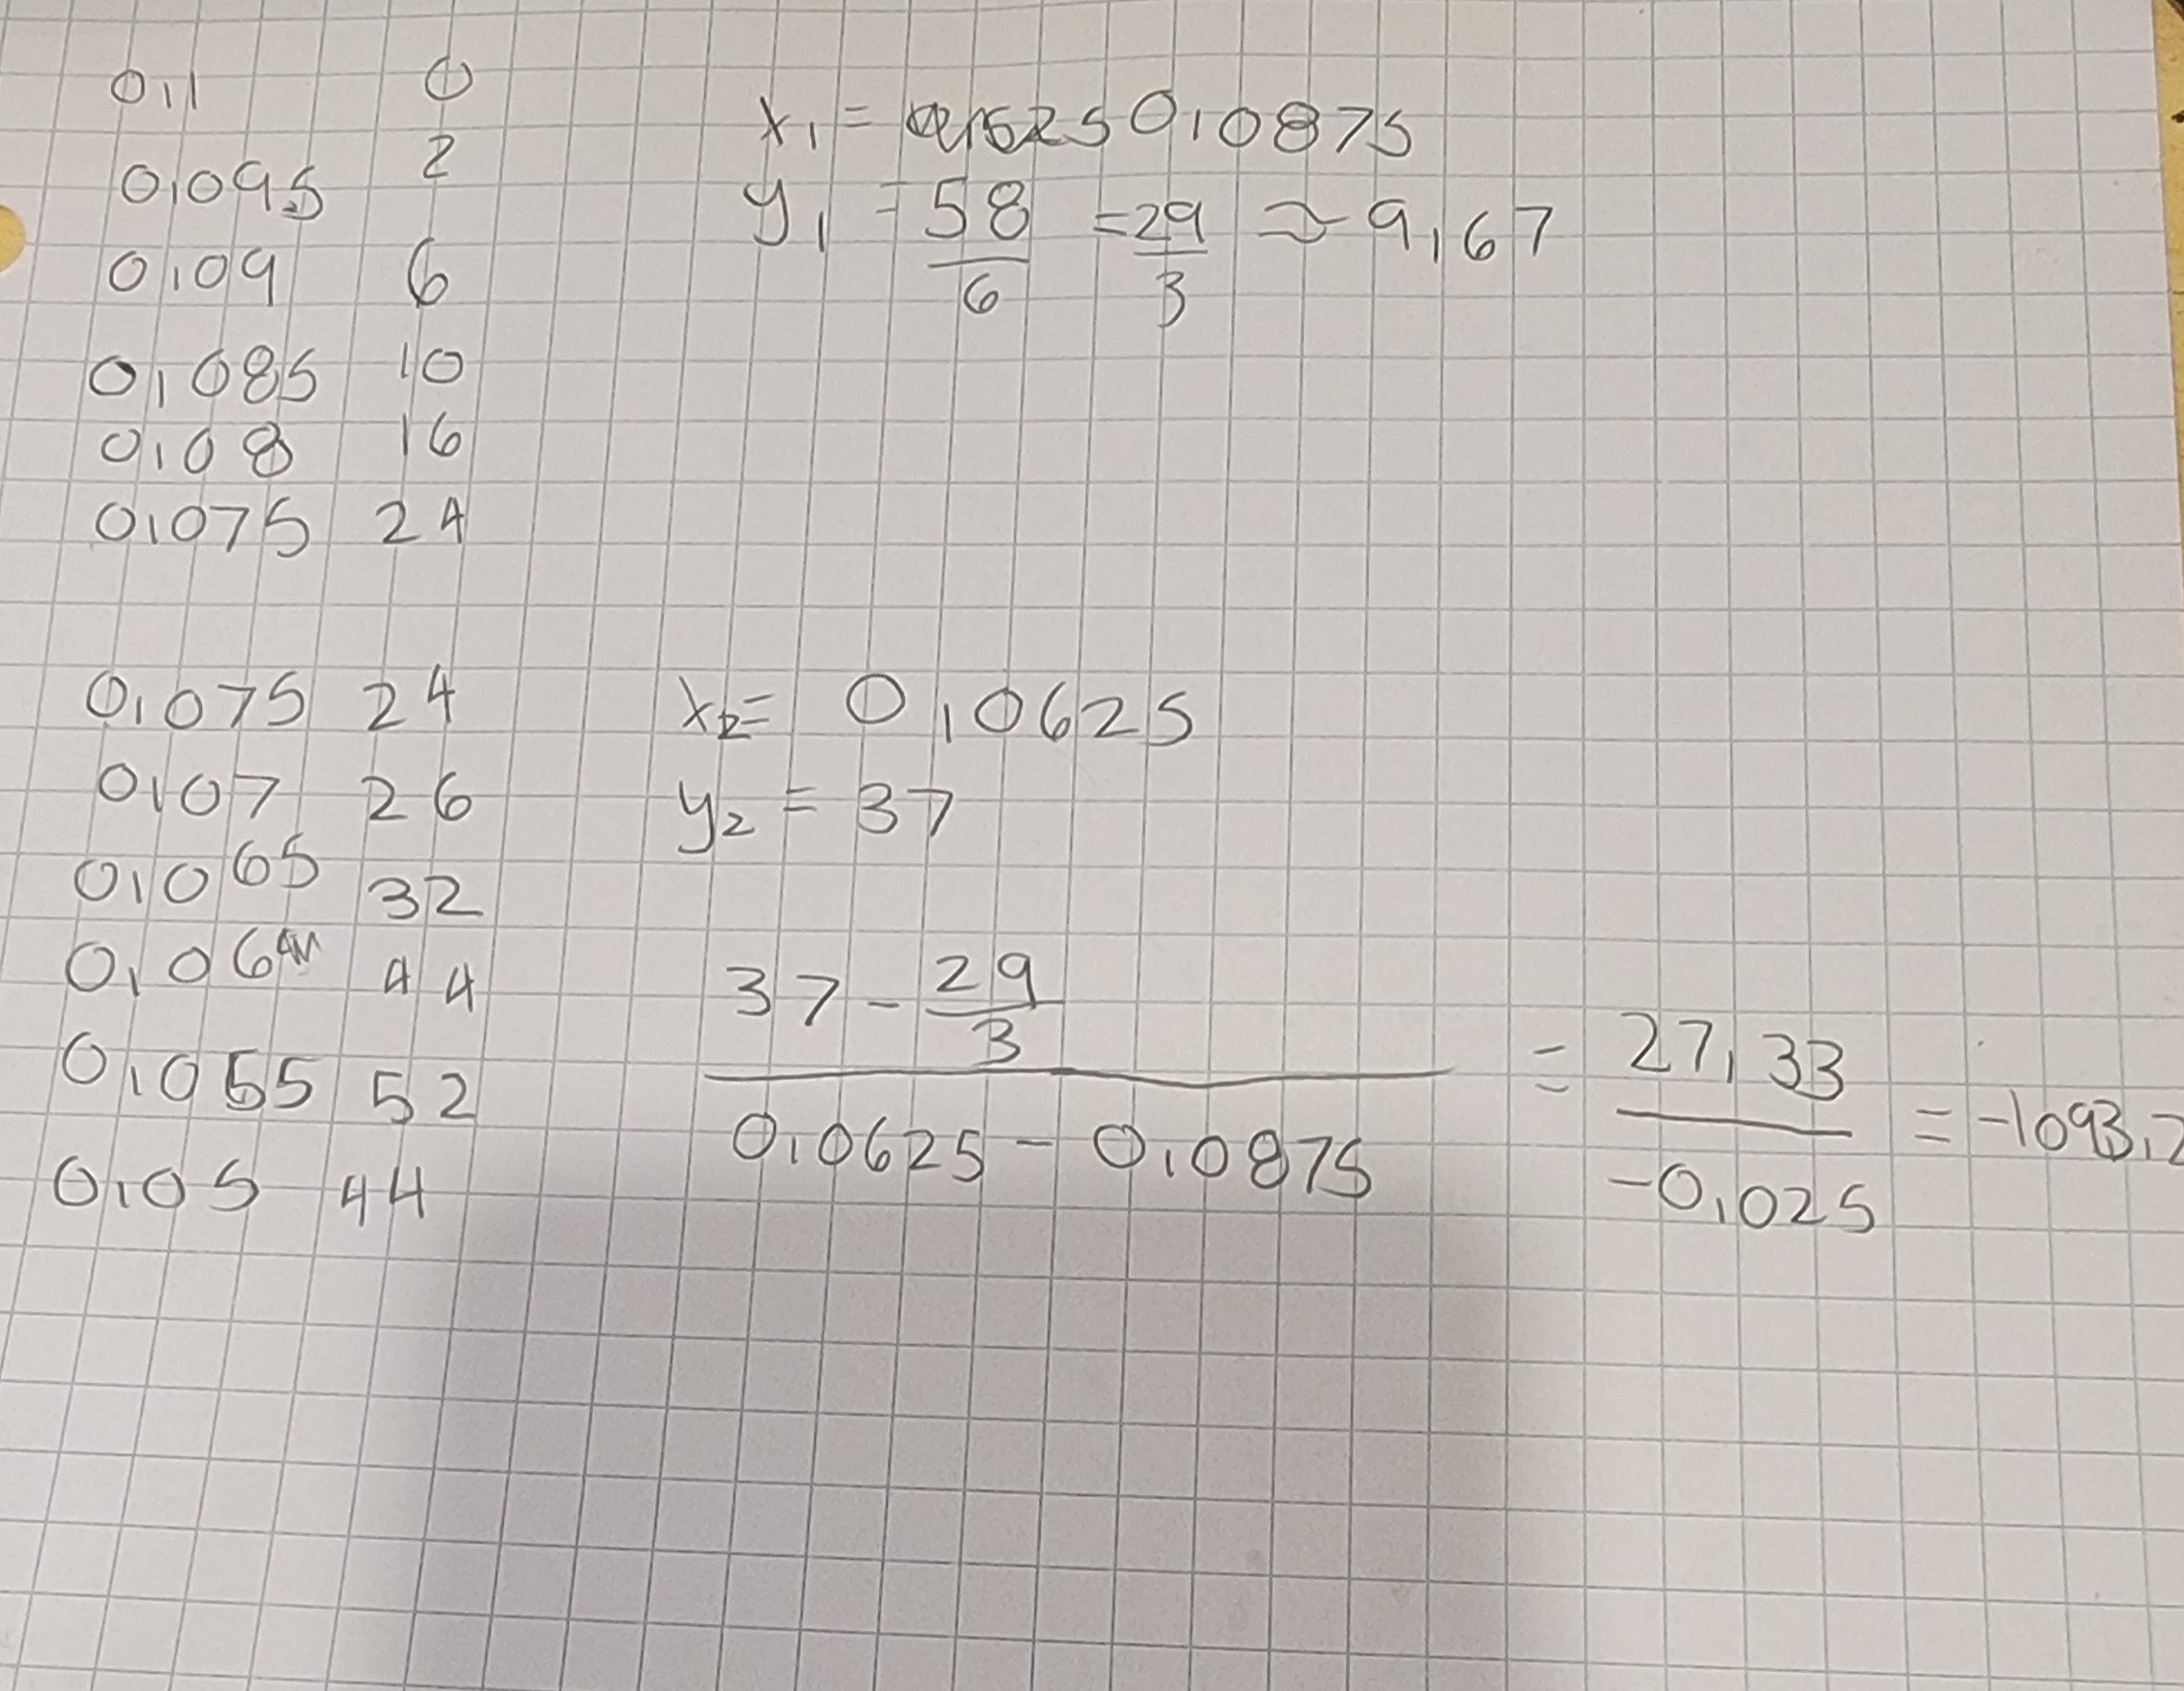 0,1 0
0,095 2
0,09 6
0,085 10
0,08 16
0,075 24
x₁ = 0,0875
y₁ = 58/6 = 29/3 ≈ 9,67
0,075 24
0,07 26
0,065 32
0,06 44
0,055 52
0,05 44
x₂ = 0,0625
y₂ = 37
37 - 29/3
0,0625 - 0,0875
= 27,33/-0,025 = -1093,2